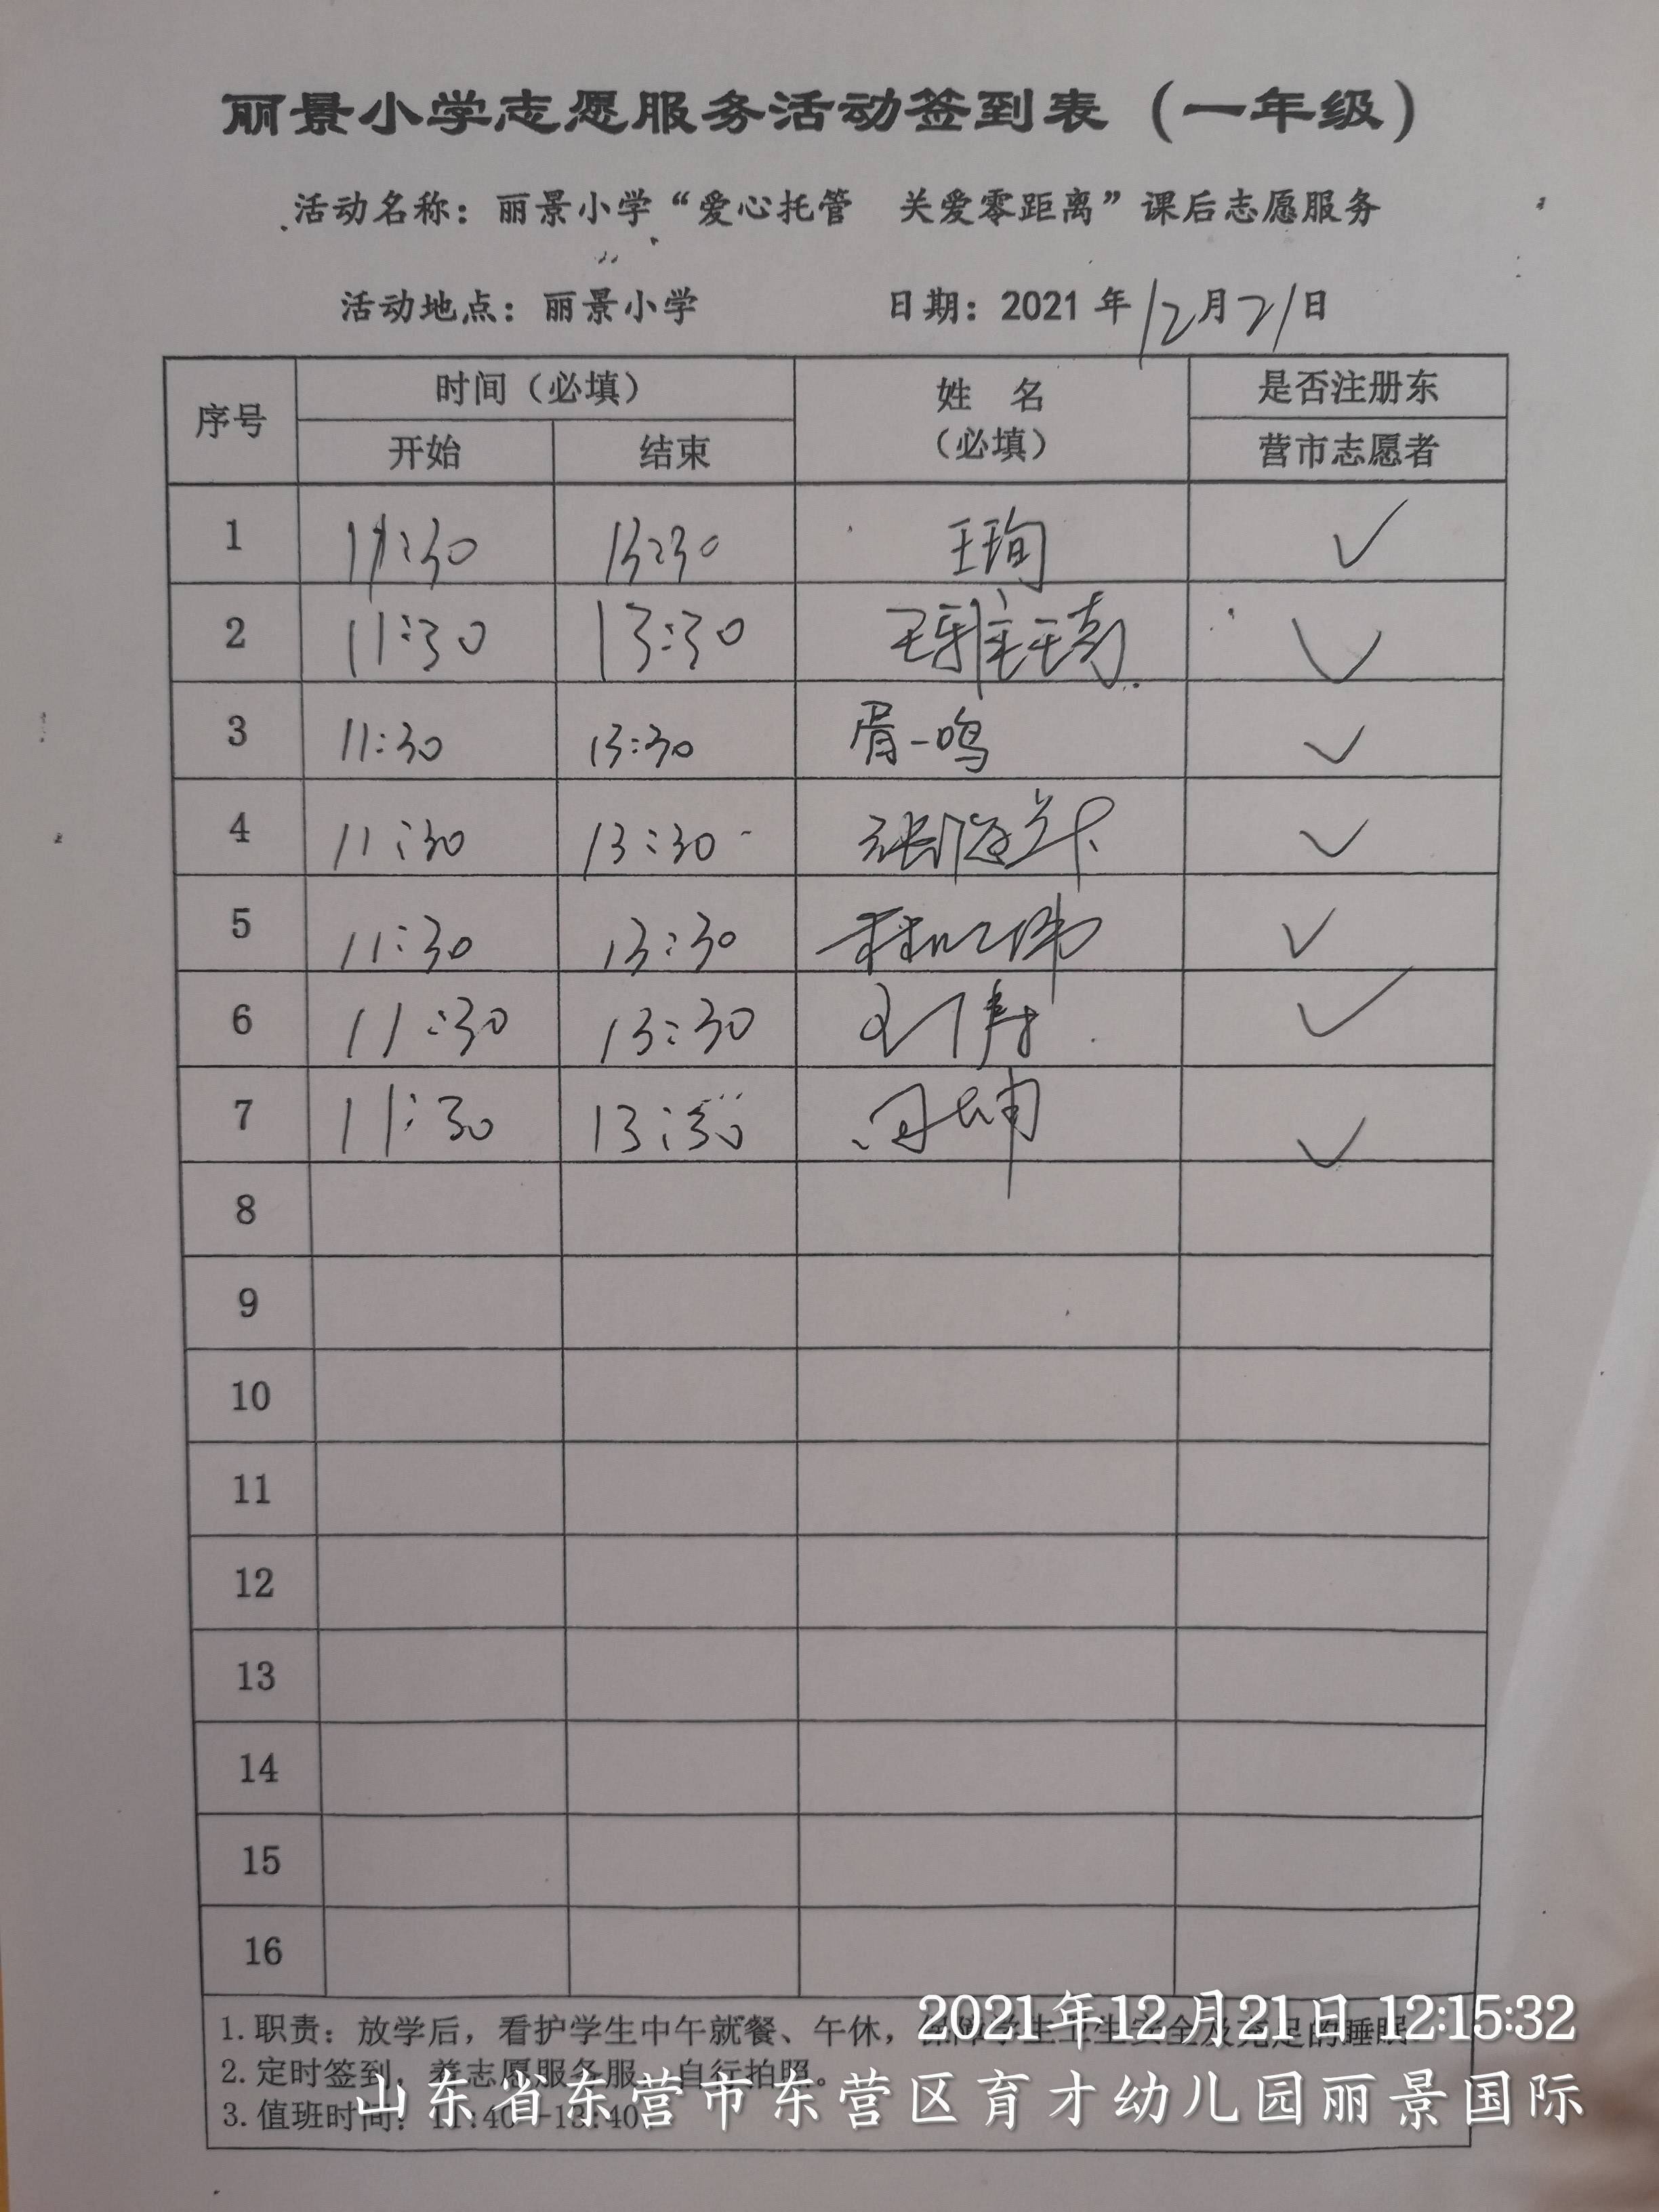 丽景小学志愿服务活动签到表（一年级）
活动名称：丽景小学“爱心托管 关爱零距离”课后志愿服务
活动地点：丽景小学 日期：2021年12月21日
序号 时间（必填） 姓 名（必填） 是否注册东
开始 结束 营市志愿者
1 11:30 13:30 王珣 ✓
2 11:30 13:30 ✓
3 11:30 13:30 胥一鸣 ✓
4 11:30 13:30 ✓
5 11:30 13:30 ✓
6 11:30 13:30 ✓
7 11:30 13:30 周坤 ✓
8
9
10
11
12
13
14
15
16
1.职责：放学后，看护学生中午就餐、午休，
2.定时签到，着志愿服务服，自行拍照。
3.值班时间：11:40--13:40
2021年12月21日 12:15:32
山东省东营市东营区育才幼儿园丽景国际